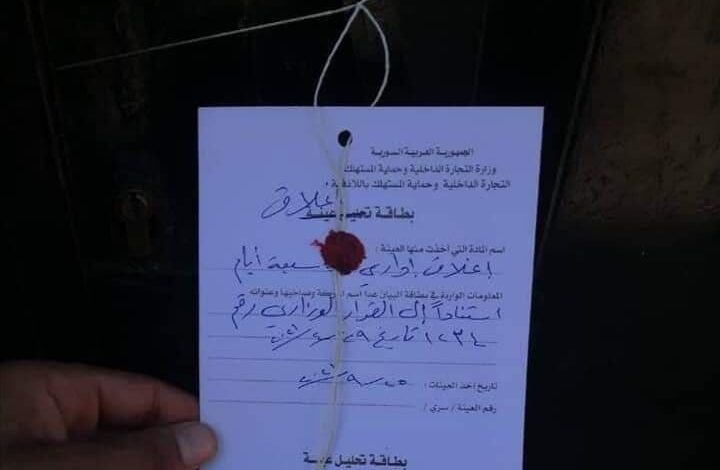 الجمهورية العربية السورية
وزارة التجارة الداخلية وحماية المستهلك
التجارة الداخلية وحماية المستهلك باللاذقية
إغلاق
بطاقة تحليل عينة
اسم المادة التي أخذت منها العينة :
إغلاق إداري سبعة أيام
المعلومات الواردة في بطاقة البيان عدا اسم الماركة وصاحبها وعنوانه
استناداً إلى القرار الوزاري رقم
١٢٣٤ تاريخ
تاريخ اخذ العينات :
رقم العينة / سري /
بطاقة تحليل عينة